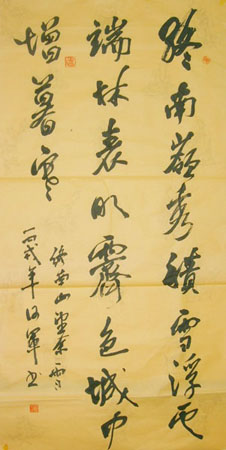 終南嶺秀積雪浮雲
端林表明霽色城中
增暮寒
終南山望余雪
丙戌年 軍书